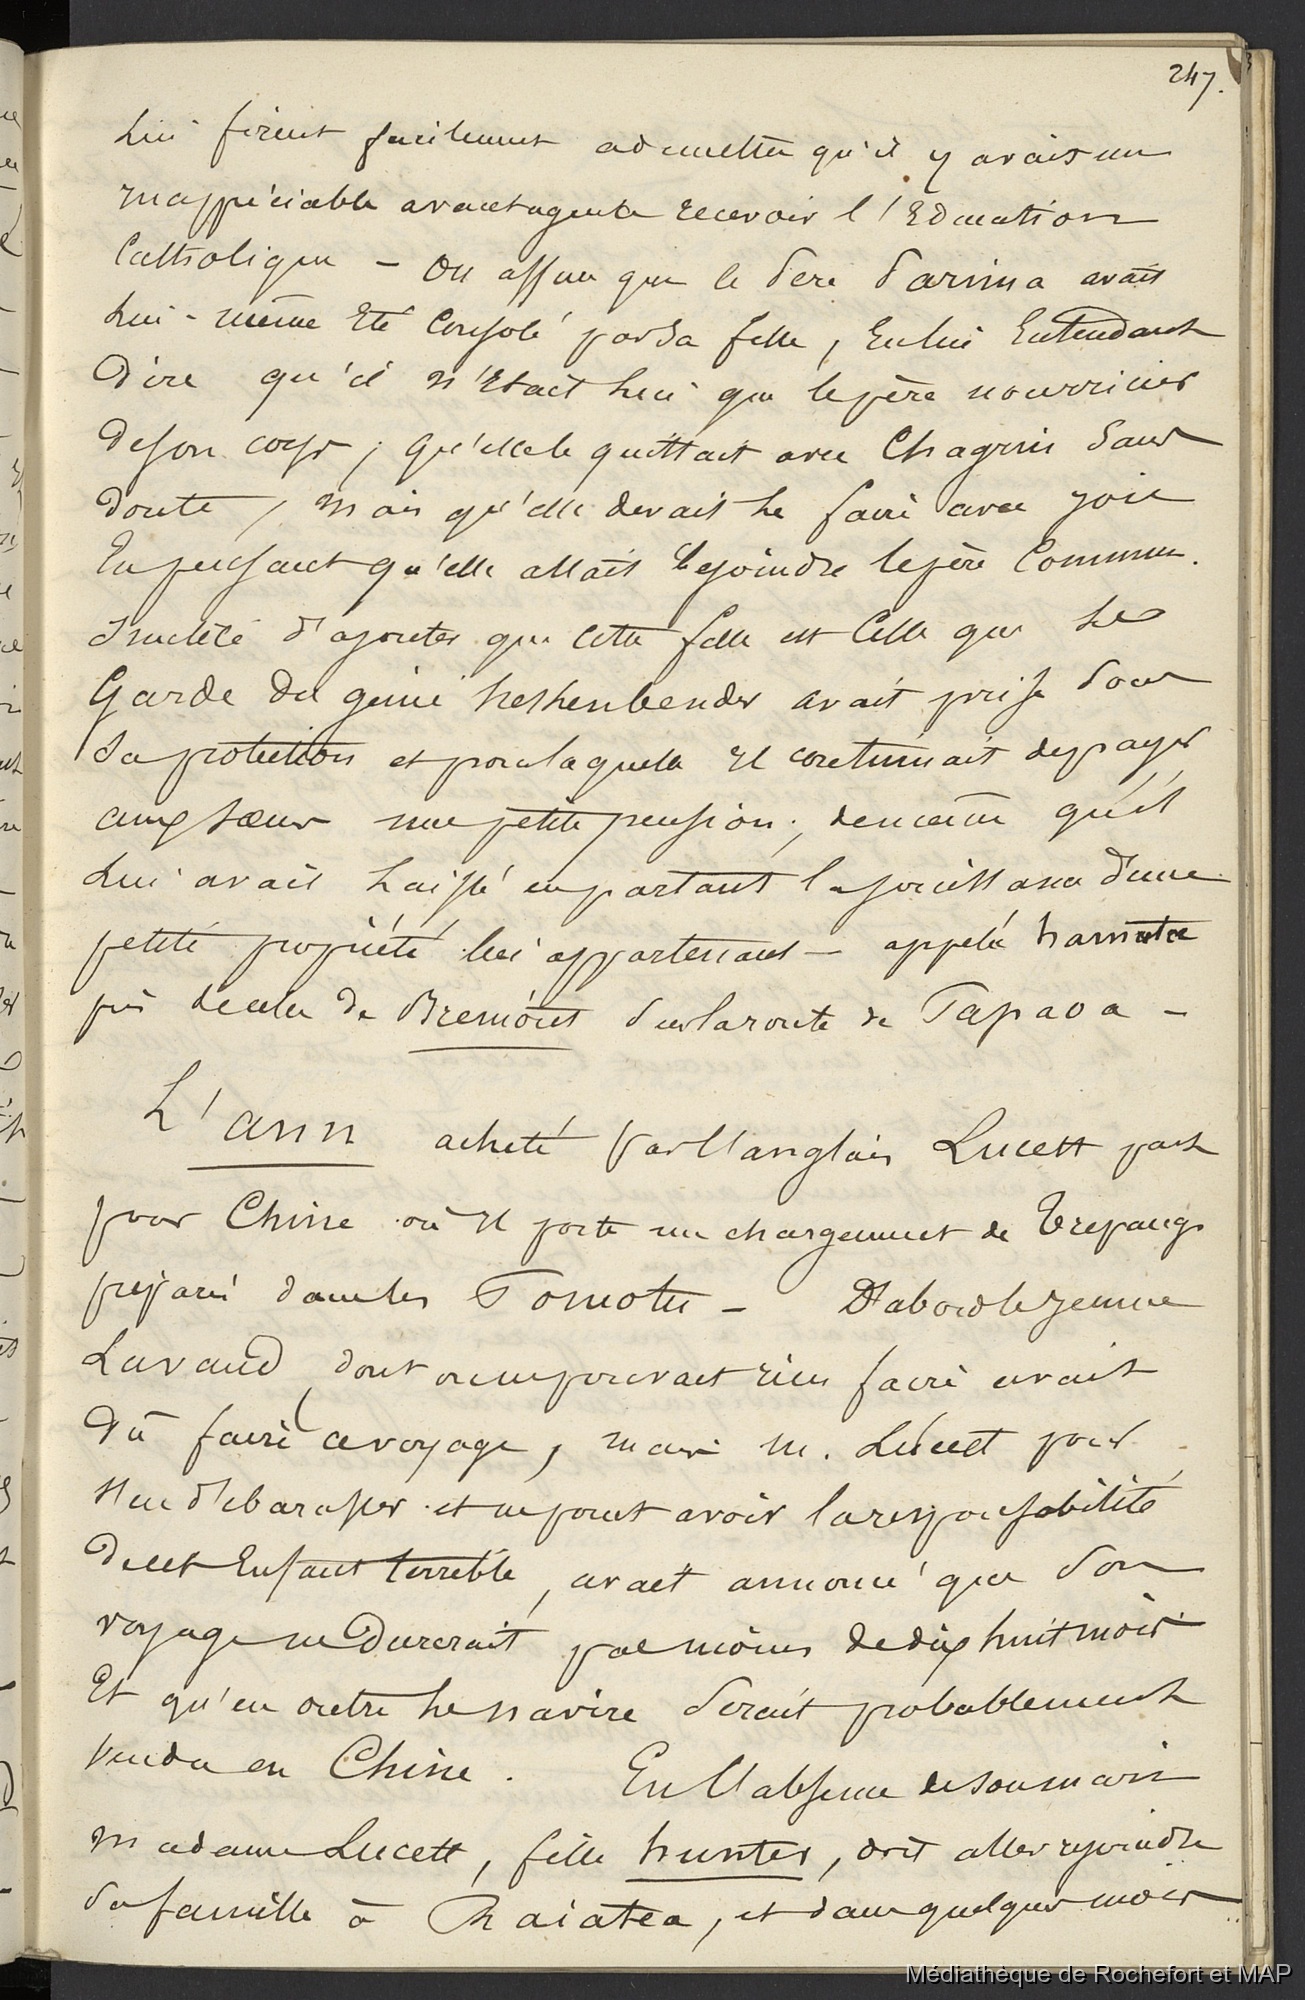 247.
lui firent facilement admettre qu'il y avait un
inappréciable avantage de recevoir l'Education
Catholique – On assure que le Père Darima avait
lui-même Eté Consolé par sa fille, En lui Entendant
Dire qu'il n'Etait lui que le père nourricier
de son corps, qu'elle le quittait avec Chagrin Sans
doute, mais qu'elle devait le faire avec joie
En pensant qu'elle allait rejoindre le père Commun.
Inutile d'ajouter que cette fille est Celle que le
Garde du génie avait prise Sous
Sa protection et pour laquelle Il continuait de payer
aux sœurs une petite pension, de même qu'il
Lui avait laissé en partant la jouissance d'une
petite propriété lui appartenant – appelée
près de celle de Bremont Sur la route de Tapaoa –
L'ann acheté par l'anglais Lucett part
pour Chine où Il porte un chargement de Trepangs
préparé dans les Pomotu – D'abord le jeune
Lavaud, dont on ne pouvait rien faire avait
Dû faire ce voyage, mais M. Lucett pour
s'en débarasser et ne point avoir la responsabilité
De cet Enfant terrible, avait annoncé que Son
voyage ne Durerait pas moins de dix huit mois
Et qu'en outre le navire Serait probablement
Vendu en Chine. En l'absence de son mari
madame Lucett, fille hunter, doit aller rejoindre
Sa famille à Raiatea, et dans quelques mois
Médiathèque de Rochefort et MAP